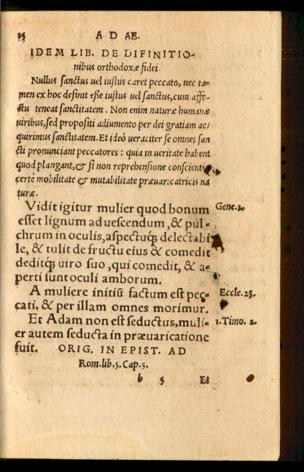 25 A D AE.
IDEM LIB. DE DIFINITIO-
nibus orthodoxæ fidei.
Nullus sanctus uel iustus caret peccato, nec ta-
men ex hoc desinit esse iustus uel sanctus, cum affe-
ctu teneat sanctitatem. Non enim naturæ humanæ
uiribus, sed propositi adiumento per dei gratiam ac-
quirimus sanctitatem. Et ideò ueraciter se omnes san-
cti pronunciant peccatores: quia in ueritate habent
quod plangant, & si non reprehensione conscientiæ,
certè mobilitate & mutabilitate præuaricatricis na
turæ.
Vidit igitur mulier quod bonum Gene.3.
esset lignum ad uescendum, & pul-
chrum in oculis, aspectuq; delectabi
le, & tulit de fructu eius & comedit
deditq; uiro suo, qui comedit, & a-
perti sunt oculi amborum.
A muliere initiũ factum est pec- Eccle.25.
cati, & per illam omnes morimur.
Et Adam non est seductus, muli- 1.Timo. 2.
er autem seducta in præuaricatione
fuit. ORIG. IN EPIST. AD
Rom.lib.5.Cap.5.
b 5 Et